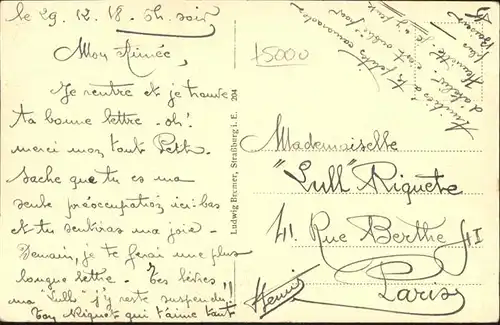 le 29.12.18 - 5h. soir
Mon Aimée,
Je rentre et je trouve
ta bonne lettre - oh!
merci mon tout Petit.
Sache que tu es ma
seule préoccupation ici bas
et tu sentiras ma joie.
Demain, je te ferai une plus
longue lettre. Tes lèvres,
ma Lull j'y reste suspendu,
Ton Riquet qui t'aime tant
Ludwig Bremer, Straßburg i. E. 204
tes petites camarades
Amitiés à
d'atelier
Henriette
75000
Mademoiselle
"Lull" Riquete
41. Rue Berthe 41
Paris
Henri